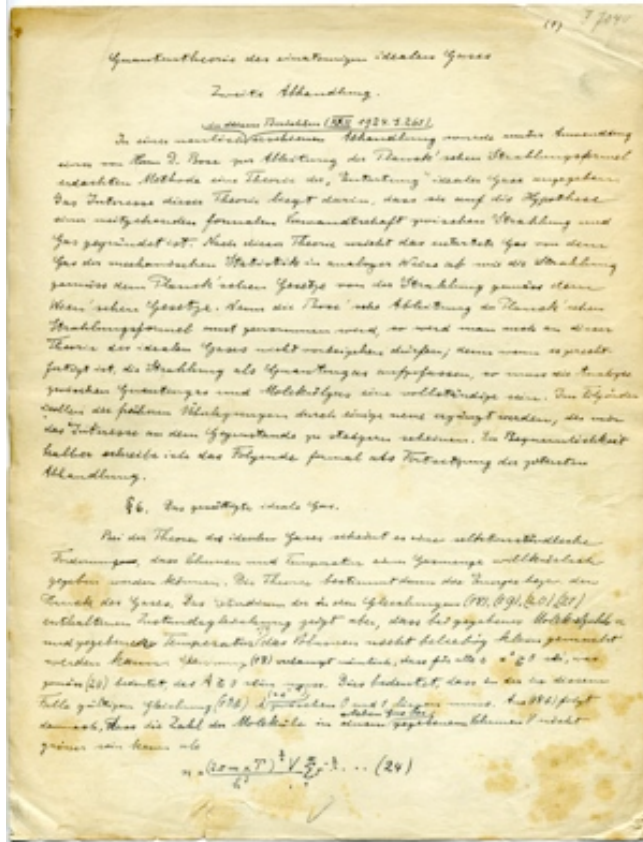 (1)
Quantentheorie des einatomigen idealen Gases
Zweite Abhandlung.
(XXII 1924. S. 261)
In einer neulich erschienenen Abhandlung wurde unter Anwendung
einer von Herrn D. Bose zur Ableitung der Planck'schen Strahlungsformel
erdachten Methode eine Theorie der „Entartung" idealer Gase angegeben.
Das Interesse dieser Theorie liegt darin, dass sie auf die Hypothese
einer weitgehenden formalen Verwandtschaft zwischen Strahlung und
Gas gegründet ist. Nach dieser Theorie weicht das entartete Gas von dem
Gas der mechanischen Statistik in analoger Weise ab wie die Strahlung
gemäss dem Planck'schen Gesetze von der Strahlung gemäss dem
Wien'schen Gesetze. Wenn die Bose'sche Ableitung der Planck'schen
Strahlungsformel ernst genommen wird, so wird man auch an dieser
Theorie des idealen Gases nicht vorbeigehen dürfen; denn wenn es gerecht-
fertigt ist, die Strahlung als Quantengas aufzufassen, so muss die Analogie
zwischen Quantengas und Molekülgas eine vollständige sein. Im Folgenden
sollen die früheren Überlegungen durch einige neue ergänzt werden, die mir
das Interesse an dem Gegenstande zu steigern scheinen. Der Bequemlichkeit
halber schreibe ich das Folgende formal als Fortsetzung der zitierten
Abhandlung.
§6. Das gesättigte ideale Gas.
Bei der Theorie des idealen Gases scheint es eine selbstverständliche
Forderung, dass Volumen und Temperatur einer Gasmenge willkürlich
gegeben werden können. Die Theorie bestimmt dann die Energie bezw. den
Druck des Gases. Das Studium der in den Gleichungen (18), (19), (20), (21)
enthaltenen Zustandsgleichung zeigt aber, dass bei gegebener Molekülzahl n
und gegebener Temperatur das Volumen nicht beliebig klein gemacht
werden kann. Gleichung (18) verlangt nämlich, dass für alle s αˢ ≧ 0 sei, was
gemäss (20) bedeutet, dass A ≧ 0 sein muss. Dies bedeutet, dass in der in diesem
Falle gültigen Gleichung (18b) λ zwischen 0 und 1 liegen muss. Aus (18b) folgt
demnach, dass die Zahl der Moleküle in einem gegebenen Volumen V nicht
grösser sein kann als
n = (2πmκT)^(3/2) V / h³ Σ τ^(-3/2) ... (24)